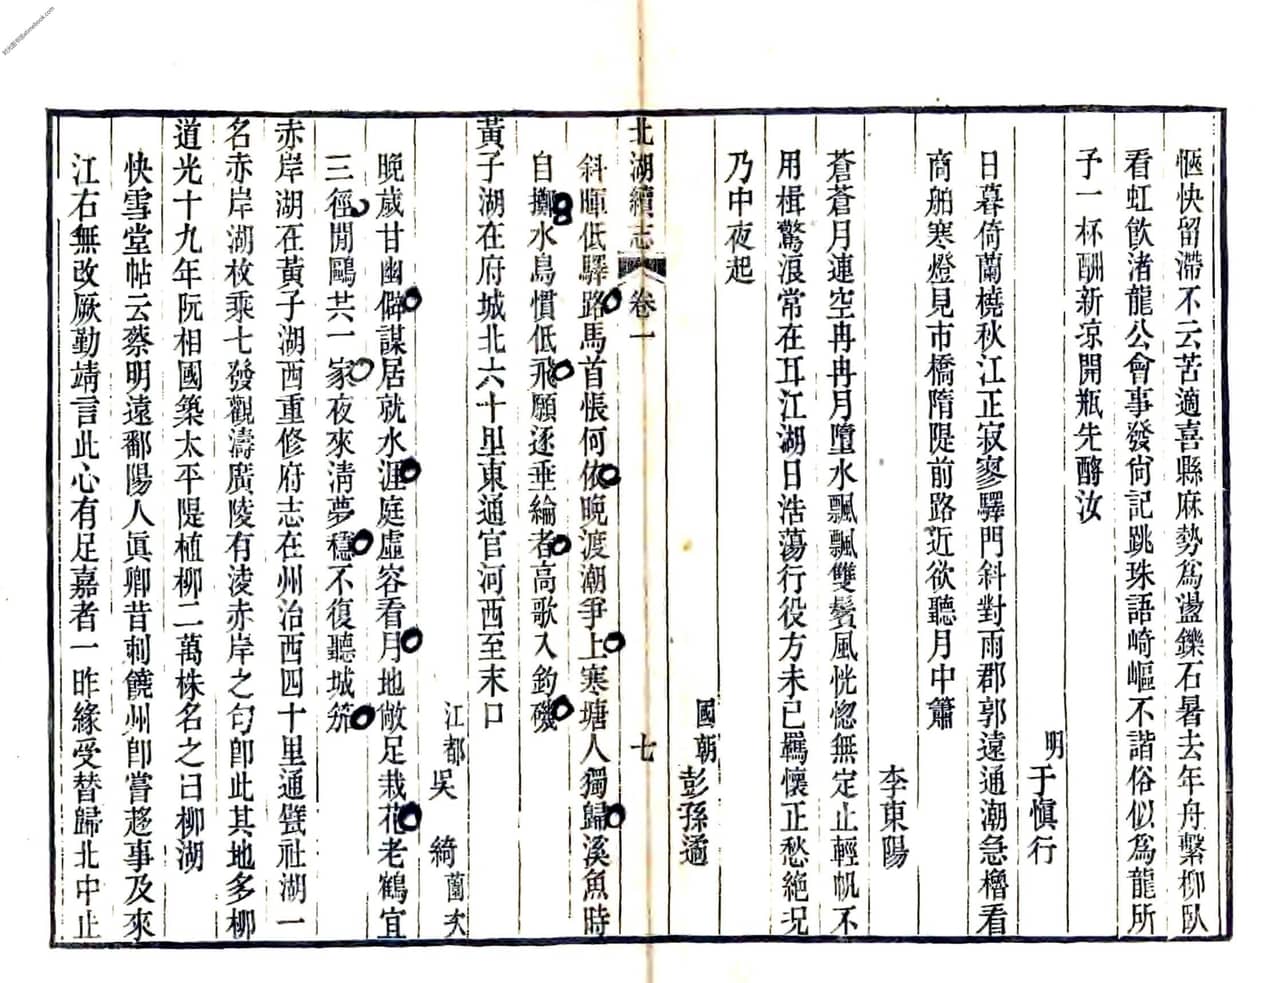 愜快留滯不云苦適喜縣麻勢爲盪鑠石暑去年舟繫柳臥
看虹飲渚龍公會事發尙記跳珠語崎嶇不諧俗似爲龍所
予一杯酬新凉開瓶先酹汝
明于愼行
日暮倚蘭橈秋江正寂寥驛門斜對雨郡郭遠通潮急櫓看
商舶寒燈見市橋隋隄前路近欲聽月中簫
李東陽
蒼蒼月連空冉冉月墮水飄飄雙鬢風恍惚無定止輕帆不
用楫驚浪常在耳江湖日浩蕩行役方未已羈懷正愁絶况
乃中夜起
國朝彭孫遹
北湖續志 卷一 七
斜暉低驛路馬首悵何依晚渡潮爭上寒塘人獨歸溪魚時
自擲水鳥慣低飛願逐垂綸者高歌入釣磯
黃子湖在府城北六十里東通官河西至末口
江都吳綺薗次
晚歲甘幽僻謀居就水涯庭虛容看月地敞足栽花老鶴宜
三徑閒鷗共一家夜來淸夢穩不復聽城笳
赤岸湖在黃子湖西重修府志在州治西四十里通甓社湖一
名赤岸湖枚乘七發觀濤廣陵有淩赤岸之句卽此其地多柳
道光十九年阮相國築太平隄植柳二萬株名之曰柳湖
快雪堂帖云蔡明遠鄱陽人眞卿昔刺饒州卽嘗趍事及來
江右無改厥勤靖言此心有足嘉者一昨緣受替歸北中止